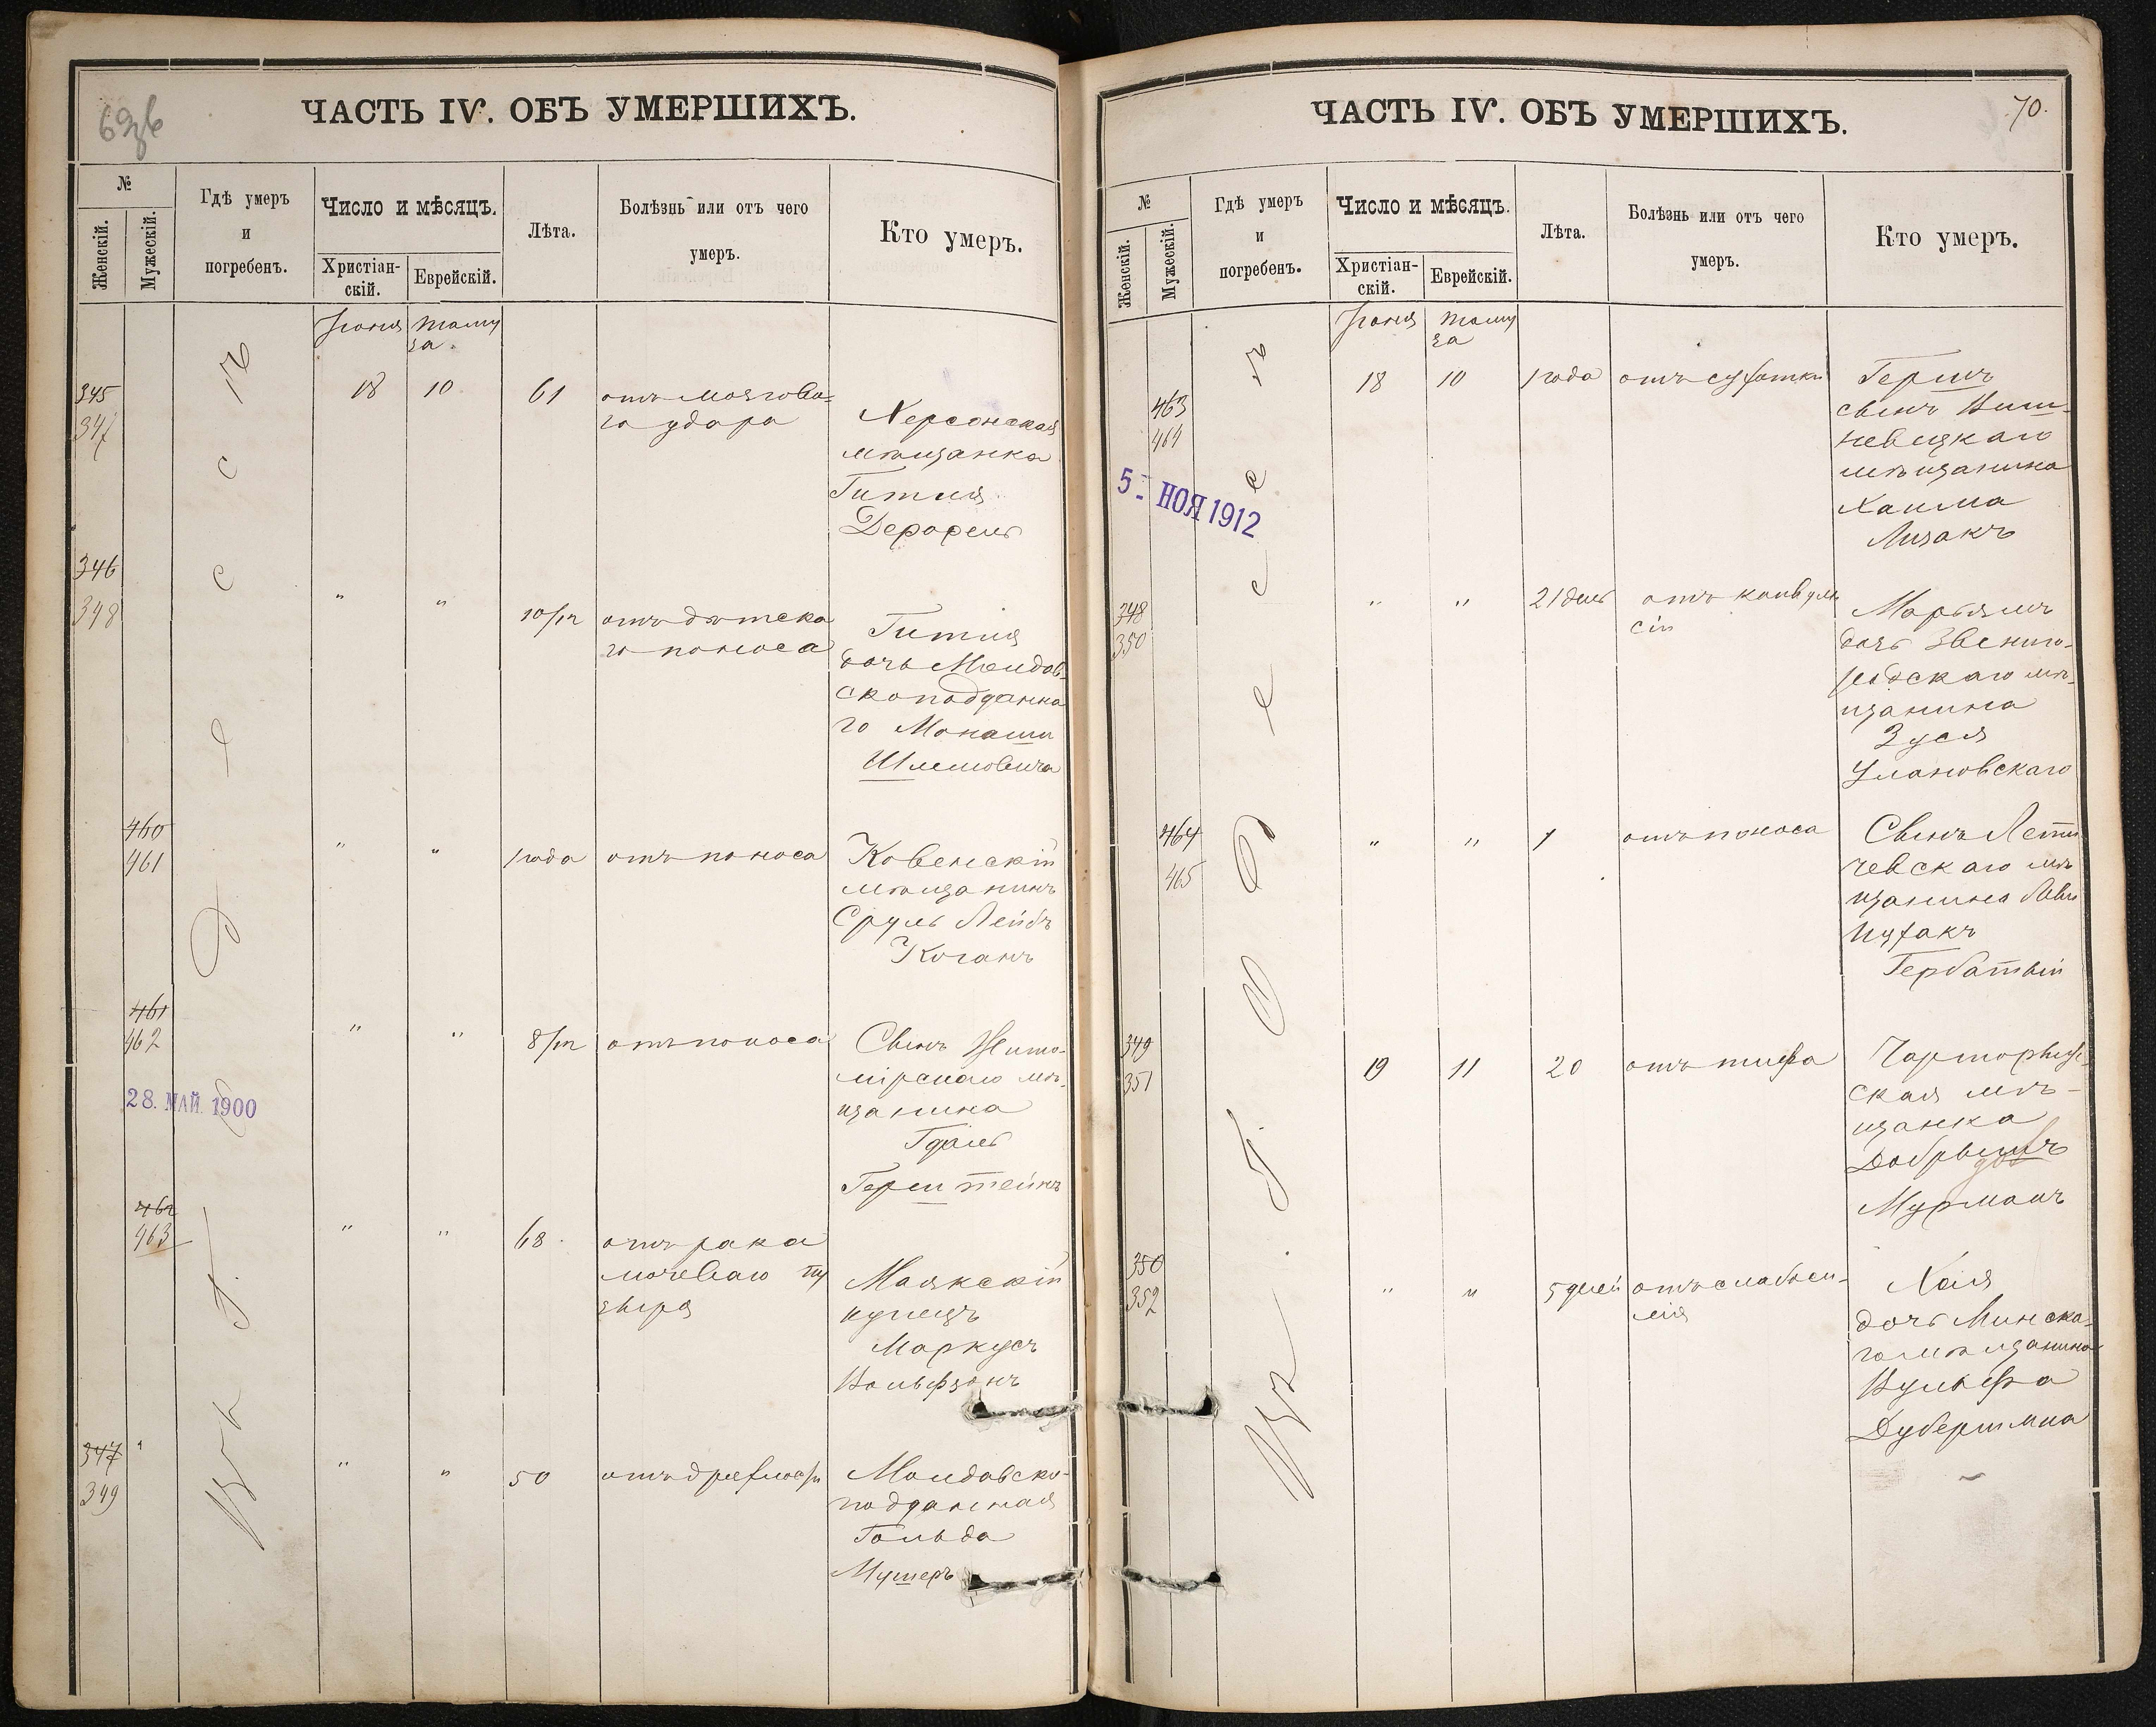 ЧАСТЬ IV. ОБЪ УМЕРШИХЪ.
№
Женскій.
Мужескій.
Гдѣ умеръ
и
погребенъ.
Число и мѣсяцъ.
Христіан-
скій.
Еврейскій.
Лѣта.
Болѣзнь или отъ чего
умеръ.
Кто умеръ.
Въ г. Одессѣ
Іюня
Таму
за
345
347
18
10
61
отъ мозгова-
го удара
Херсонская
мѣщанка
Гитля
346
348
"
"
10/м
отъ дѣтска
го поноса
Гитля
дочь Молдав-
скоподданна
го Монаши
Шлемовича
460
461
"
"
1 года
отъ поноса
Ковенскій
мѣщанинъ
Сруль Лейбъ
Коганъ
461
462
"
"
8/м
отъ поноса
Сынъ Жито-
мірскаго мѣ-
щанина
Гдаль
Герштейнъ
28. МАЙ. 1900
462
463
"
"
68
отъ рака
мочеваго пу
зыря
Маякскій
купецъ
Маркусъ
Вольфзонъ
347
349
"
"
50
отъ дряхлости
Молдавско-
подданная
Гольда
Мушеръ
ЧАСТЬ IV. ОБЪ УМЕРШИХЪ.
70.
№
Женскій.
Мужескій.
Гдѣ умеръ
и
погребенъ.
Число и мѣсяцъ.
Христіан-
скій.
Еврейскій.
Лѣта.
Болѣзнь или отъ чего
умеръ.
Кто умеръ.
Въ г. Одессѣ
Іюня
Таму
за
463
464
18
10
1 года
отъ сухотки
Гершъ
сынъ Виш-
невецкаго
мѣщанина
Хаима
Лизакъ
5- НОЯ 1912
348
350
"
"
21 день
отъ конвуль
сіи
Марьямъ
дочь Звениго-
родскаго мѣ-
щанина
Зуся
Улановскаго
464
465
"
"
1
отъ поноса
Сынъ Лети
чевскаго мѣ
щанина
Ицхакъ
Гербатый
349
351
19
11
20
отъ тифа
ская мѣ-
щанка
Добрышъ
Мурманъ
350
352
"
"
5 дней
отъ слабоси-
лія
Хая
дочь Минска-
го мѣщанина
Вульфа